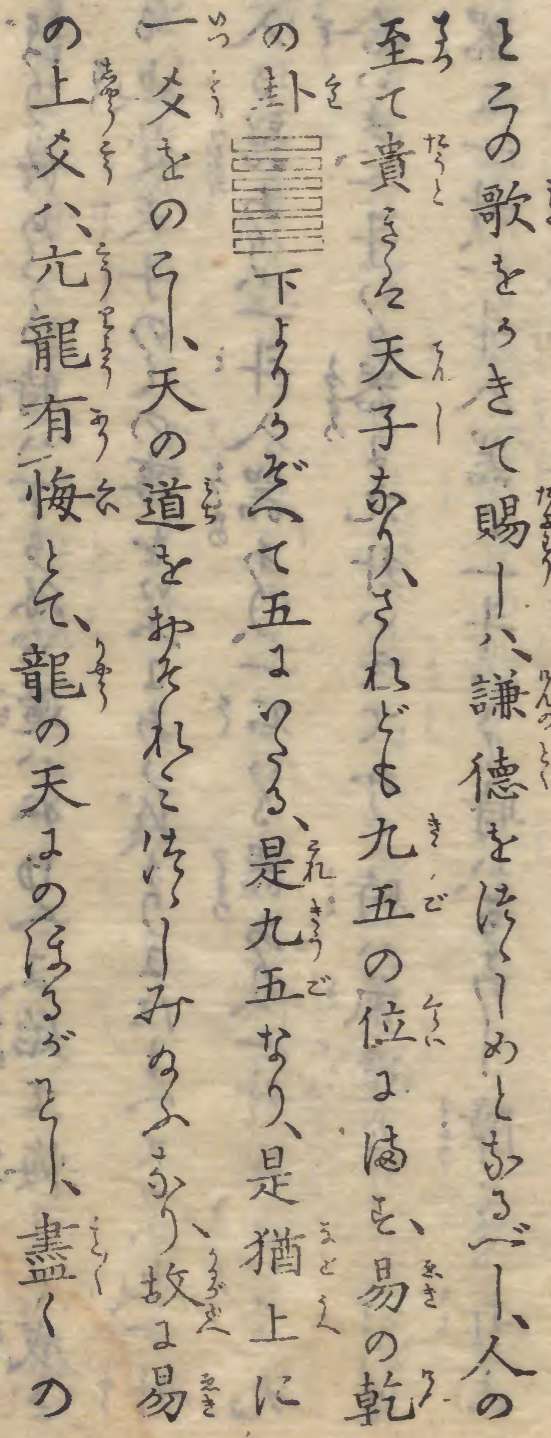 とこの歌をかきて賜しハ、謙徳をつゝしめとなるべし、人の
至て貴きは天子なり、されども九五の位に満ず、易の乾
の卦䷀下よりかぞへて五にいたる、是九五なり、是猶上に
一爻をのこし、天の道をおそれミつゝしみ給ふなり、故に易
の上爻ハ、亢龍有悔とて、龍の天にのぼるがごとし、盡くの